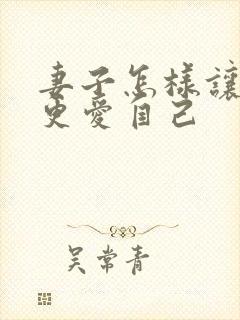 妻子怎樣讓
更愛自己
吳常青